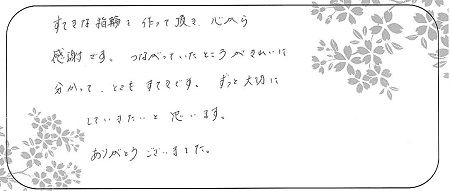 すてきな指輪を作って頂き、心から
感謝です。つながっていたところがきれいに
分かって、とてもすてきです。ずっと大切に
していきたいと思います。
ありがとうございました。